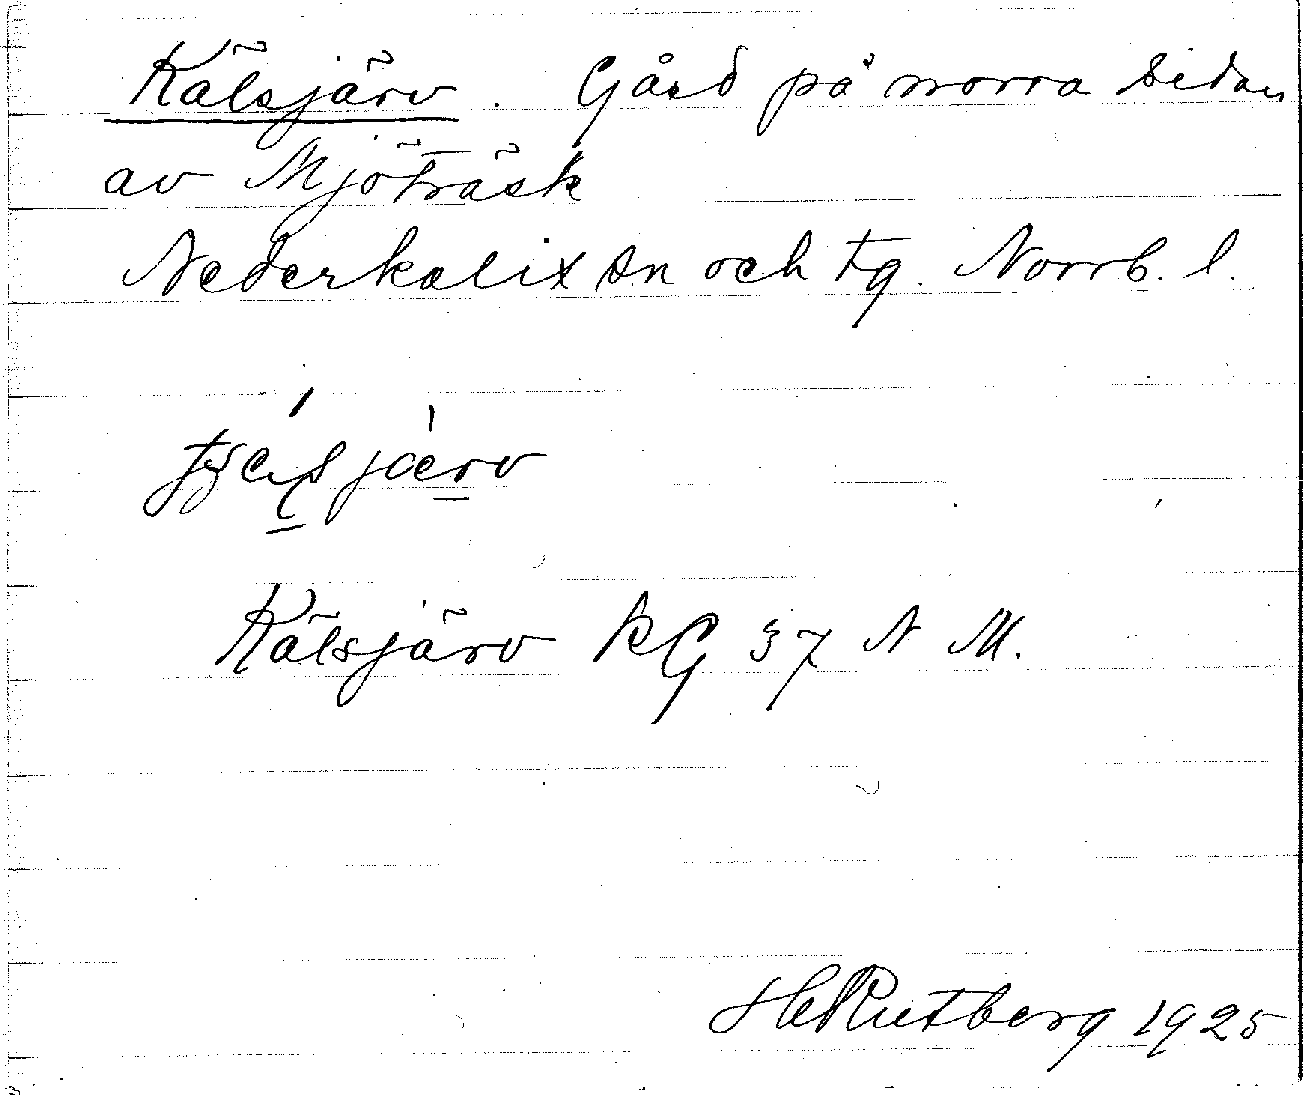 Kälsjärv. Gård på norra sidan
av Mjöträsk
Nederkalix sn och tg. Norrb. l.
Kälsjärv KG 37 N M.
H Rutberg 1925